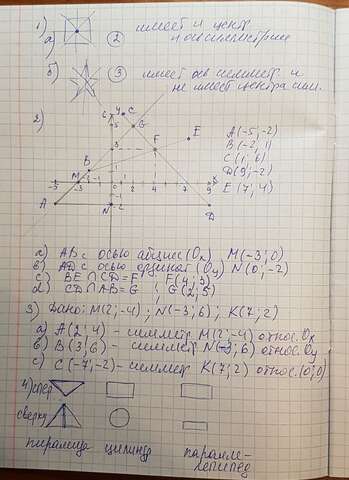 1)
а) ② имеет и центр
и ось симметрии
б) ③ имеет ось симметр и
не имеет центра сим.
2)
6 5 3 1 0 -2
-5 -3 -2 -1 1 4 9 x
A B C D E F G M N
A(-5;-2)
B(-2; 1)
C(1; 6)
D(9;-2)
E(7; 4)
а) AB с осью абцисс (Ox) M(-3;0)
в) AD с осью ординат (Oy) N(0;-2)
с) BE ∩ CD = F ; F(4; 3)
d) CD ∩ AB = G ; G(2; 5)
3) Дано: M(2;-4) ; N(-3; 6) ; K(7; 2)
а) A(2; 4) - симметр M(2;-4) относ. Ox
в) B(3; 6) - симметр N(-3; 6) относ. Oy
с) C(-7;-2) - симметр K(7; 2) относ. (0;0)
4) спер.
сверху
пирамида цилиндр паралле-
лепипед